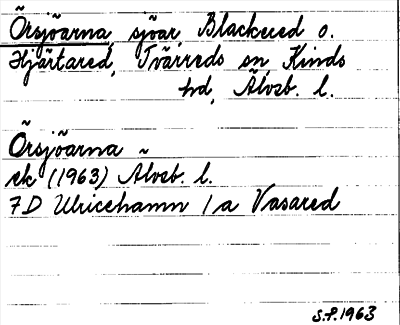 Örsjöarna, sjöar, Blackered o.
Hjärtared, Tvärreds sn, Kinds
hd, Älvsb. l.
Örsjöarna ~
ek (1963) Älvsb. l.
7D Ulricehamn 1a Vasared
S.F. 1963